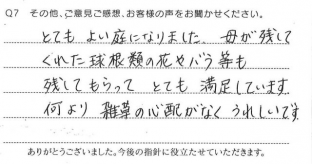 Q7 その他、ご意見ご感想、お客様の声をお聞かせください。
とても よい庭になりました. 母が残して
くれた球根類の花やバラ等も
残してもらって とても 満足しています.
何より 雑草の心配がなく うれしいです
ありがとうございました。今後の指針に役立たせていただきます。